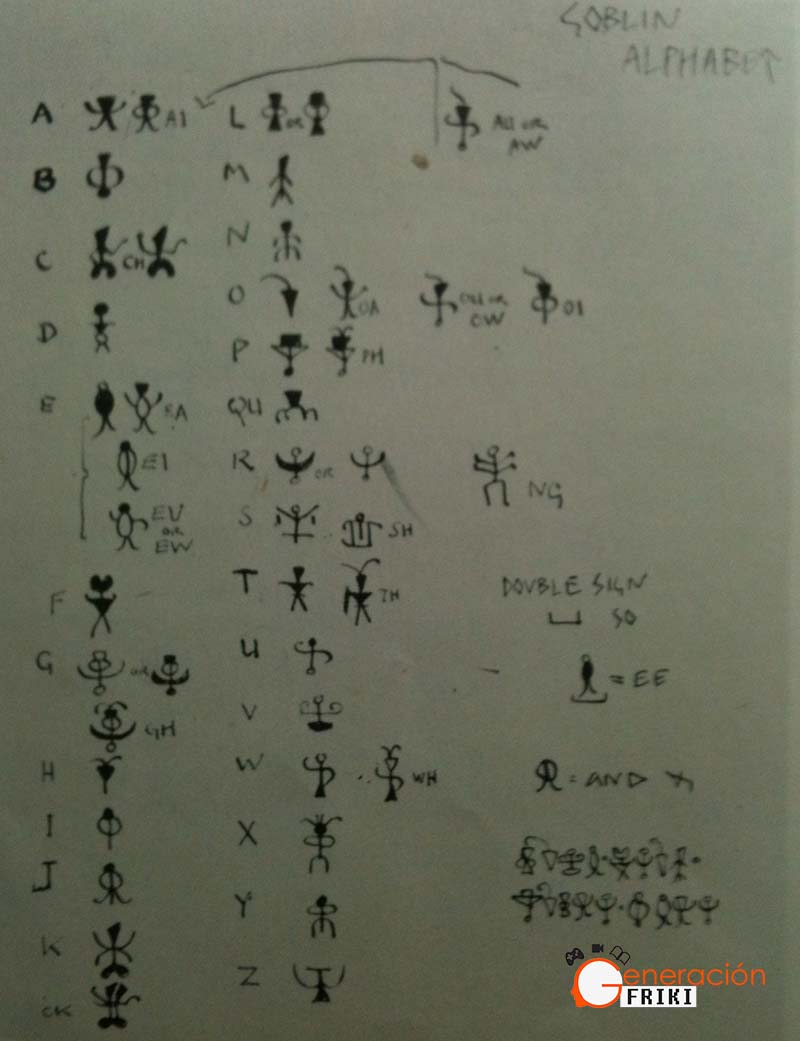 GOBLIN
ALPHABET
A AI
L OR
AU OR
AW
B
M
C CH
N
O OA OU OR
OW OI
D
P PH
E EA
QU
EI
R OR
NG
EU
OR
EW
S SH
F
T TH
DOUBLE SIGN
SO
G OR
U
= EE
GH
V
H
W WH
= AND
I
X
J
Y
K
Z
CK
Generación
FRIKI